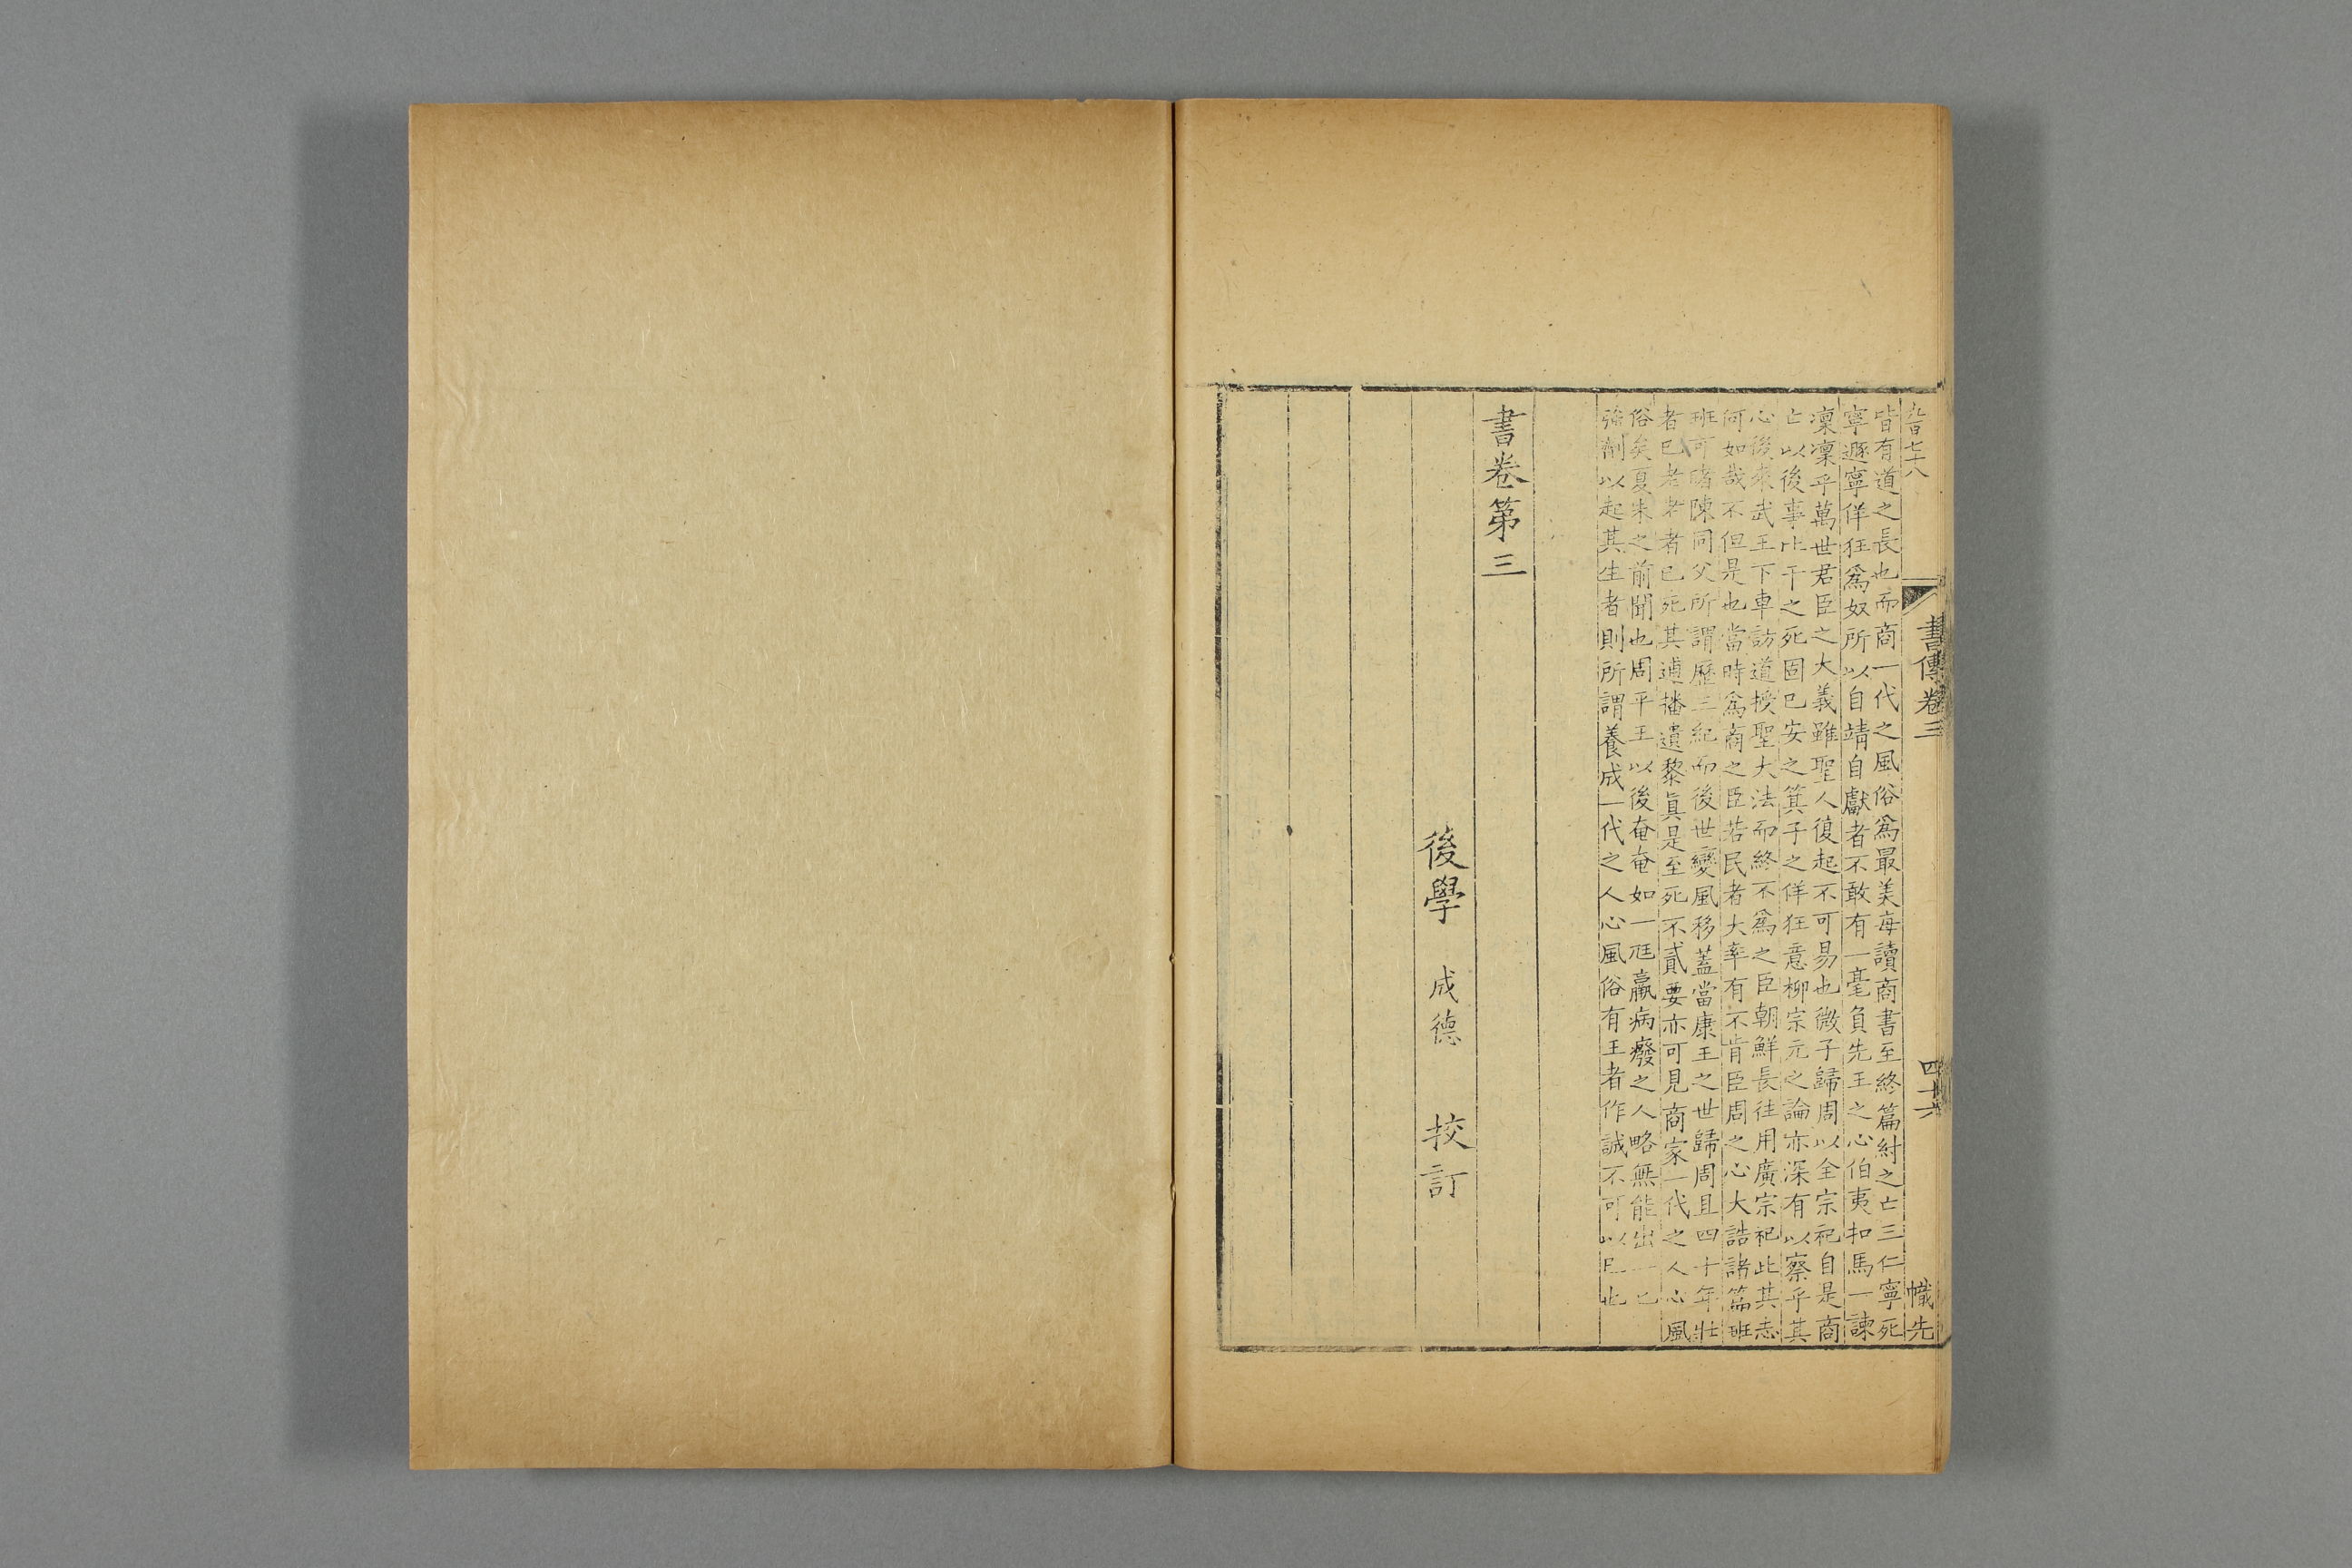 九百七十八
書傳卷三
四十六
幟先
皆有道之長也而商一代之風俗爲最美每讀商書至終篇紂之亡三仁寧死
寧遯寧佯狂爲奴所以自靖自獻者不敢有一毫負先王之心伯夷扣馬一諫
凜凜乎萬世君臣之大義雖聖人復起不可易也微子歸周以全宗祀自是商
亡以後事比干之死固已安之箕子之佯狂意柳宗元之論亦深有以察乎其
心後來武王下車訪道授聖大法而終不爲之臣朝鮮長往用廣宗祀此其志
何如哉不但是也當時爲商之臣若民者大率有不肯臣周之心大誥諸篇班
班可睹陳同父所謂歷三紀而後世變風移蓋當康王之世歸周且四十年壯
者已老老者已死其逋播遺黎眞是至死不貳要亦可見商家一代之人心風
俗矣夏未之前聞也周平王以後奄奄如一尫羸病癈之人略無能出一
強劑以起其生者則所謂養成一代之人心風俗有王者作誠不可以已此
書卷第三
後學 成德 挍訂